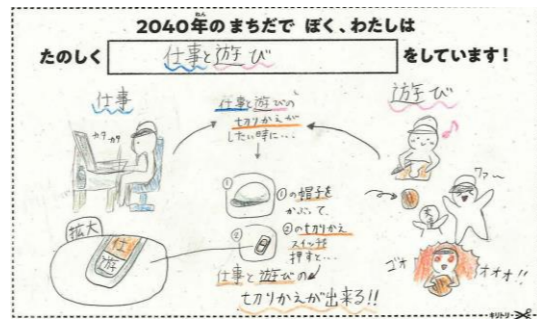 2040年のまちだで ぼく、わたしは
ねん
たのしく 仕事と遊び をしています!
仕事
カタカタ
仕事と遊びの
切りかえが
したい時に…
遊び
①
①の帽子を
かぶって、
②
②の切りかえ
スイッチを
押すと…
拡大
仕
遊
仕事と遊びの
切りかえが出来る!!
ワァ〜
ゴオ
オオオ!!
キリトリ